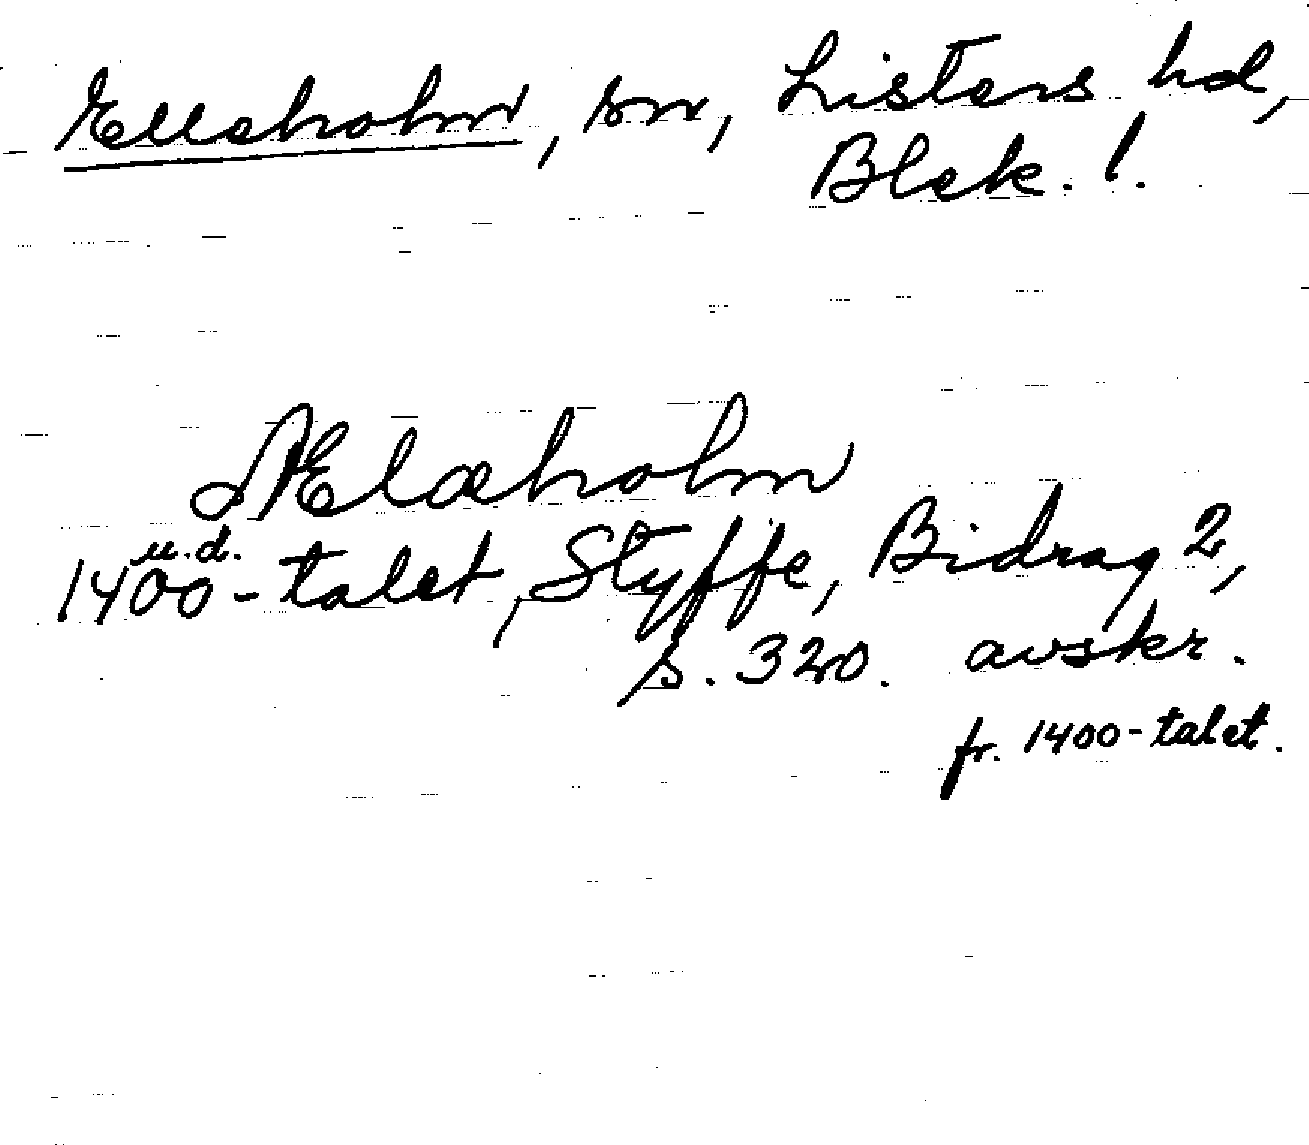 Elleholm, sn, Listers hd,
Blek. !.
Ælæholm
u.d.
1400-talet, Styffe, Bidrag 2,
s. 320. avskr.
fr. 1400-talet.